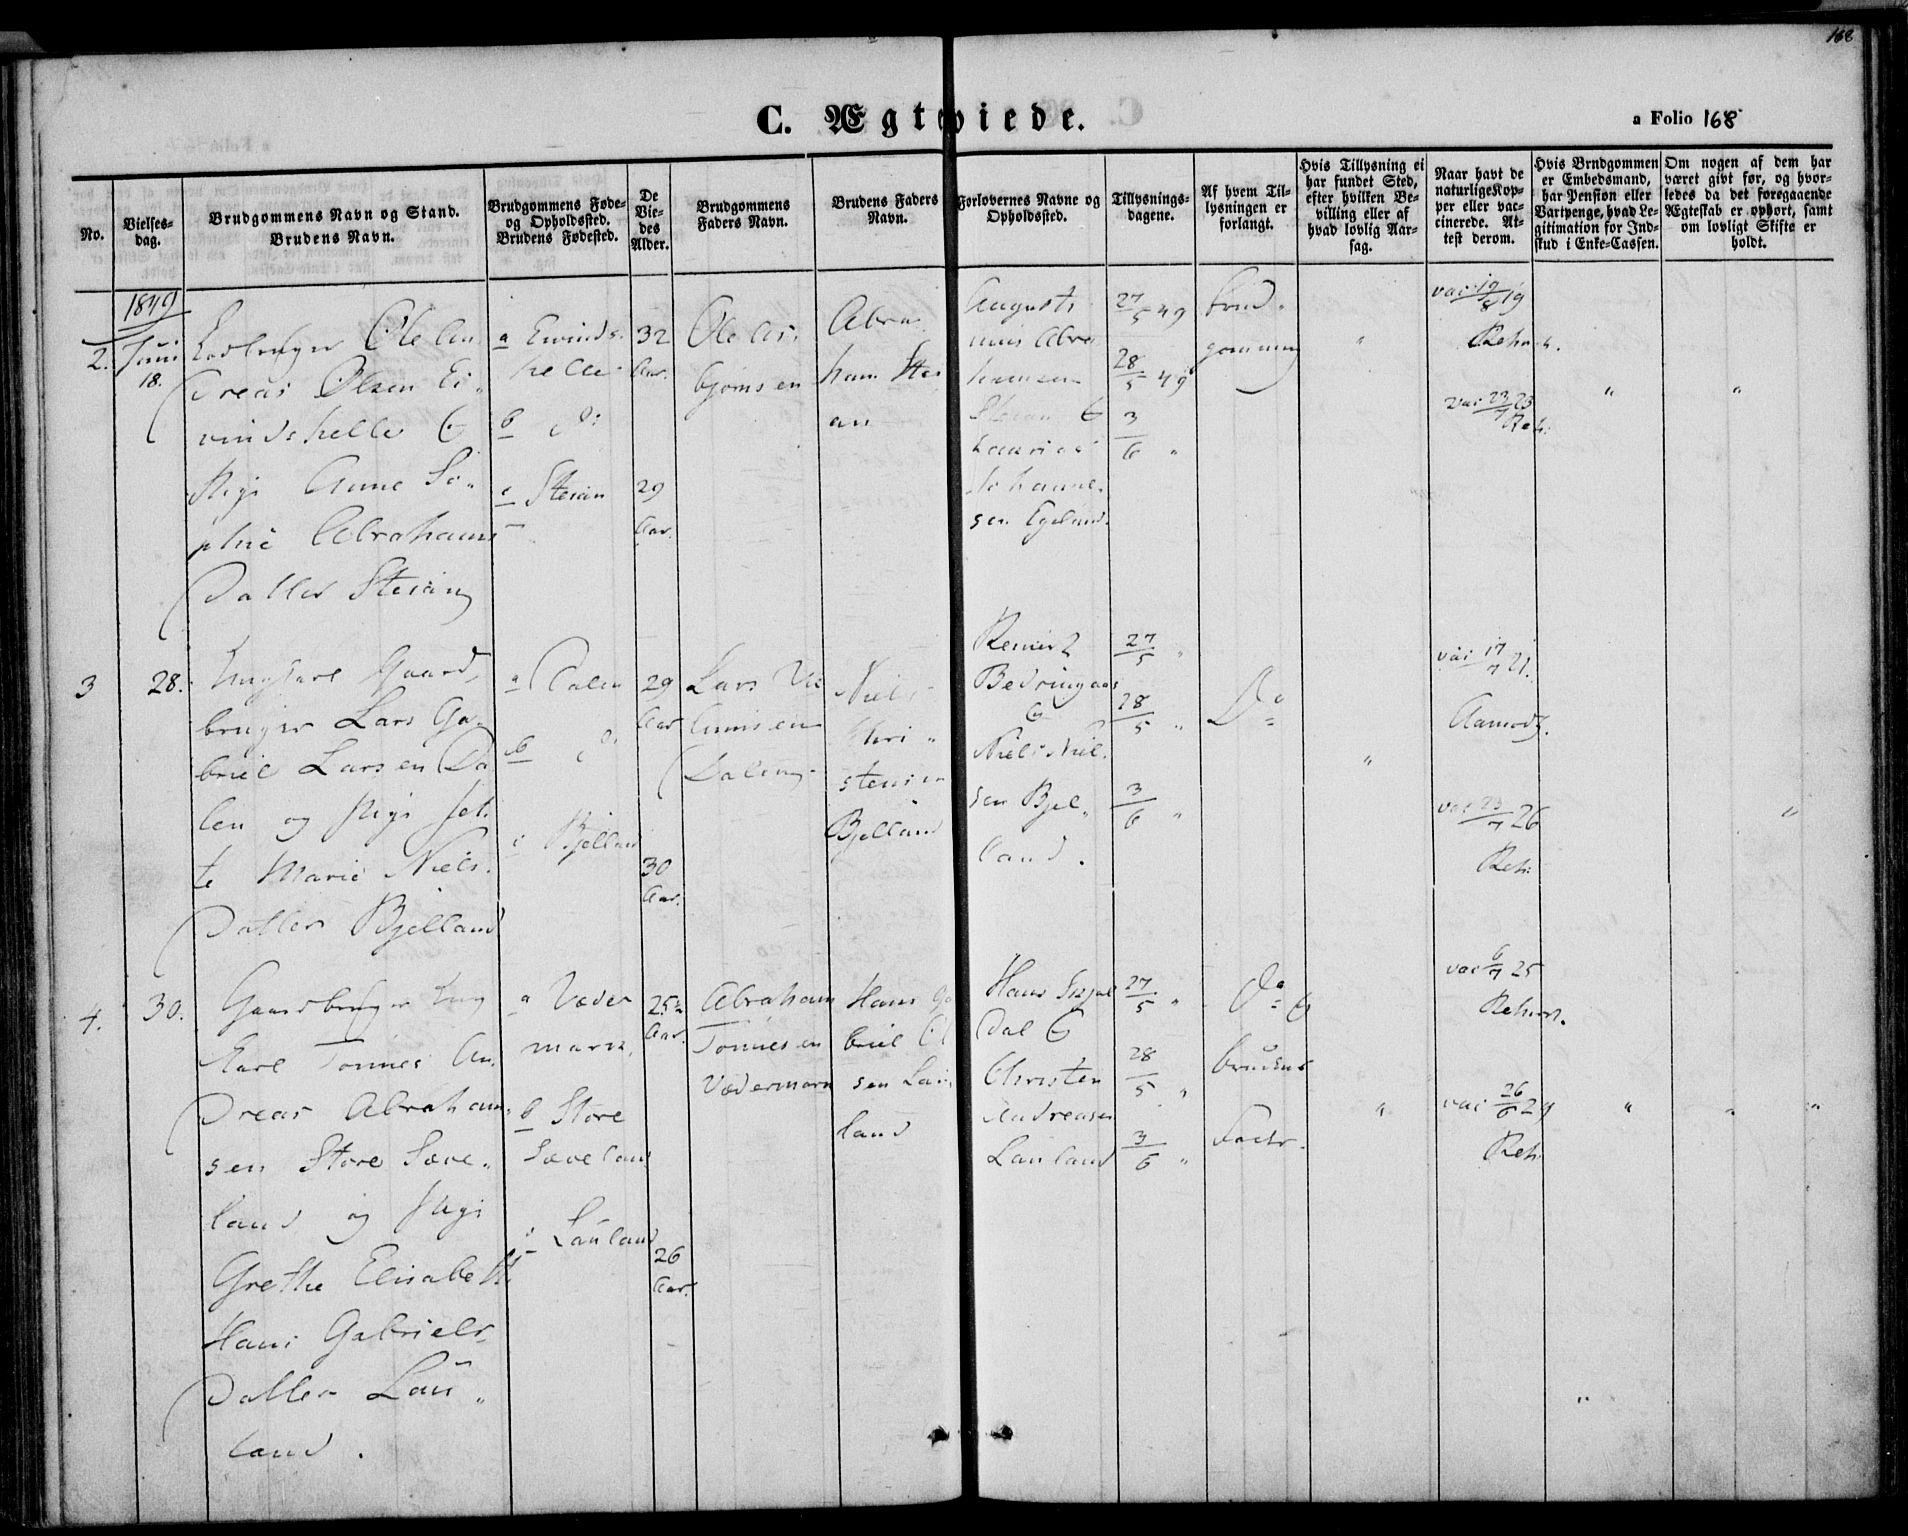 168
C. Ægtviede.
a Folio 168
No.
Vielses-
dag.
Brudgommens Navn og Stand.
Brudens Navn.
Brudgommens Føde-
og Opholdssted.
Brudens Fødested.
De
Vie-
des
Alder.
Brudgommens
Faders Navn.
Brudens Faders
Navn.
Forlovernes Navne og
Opholdssted.
Tillysnings-
dagene.
Af hvem Til-
lysningen er
forlangt.
Hvis Tillysning ei
har fundet Sted,
efter hvilken Be-
villing eller af
hvad lovlig Aar-
sag.
Naar havt de
naturlige Kop-
per eller vac-
cinerede. At-
test derom.
Hvis Brudgommen
er Embedsmand,
har Pension eller
Vartpenge, hvad Le-
gitimation for Ind-
skud i Enke-Cassen.
Om nogen af dem har
været givt før, og hvor-
ledes da det foregaaende
Ægteskab er ophørt, samt
om lovligt Skifte er
holdt.
1849
2.
Juni
18.
Ole An
dreas Olsen Ei-
vindshelle &
Pige Anne So-
phie Abrahams
Datter Steian
a Eivinds-
helle
b do
c Steian
32
Aar.
29
Aar.
Ole As-
bjørnsen
Abra
ham Stei
an
Augusti
nius Abra
hamsen
Steian &
Johanne-
sen Egeland.
27/5 49
28/5 49
3/6 "
Brud-
gommen
"
vac: 19/8 19
vac: 23/7 23
Reh:
"
"
3
28.
Ungkarl Gaard-
bruger Lars Ga-
briel Larsen Da
len og Pige Jet-
te Marie Niels-
Datter Bjelland
a Dalen
b do
c Bjelland
29
Aar
30
Aar.
Lars
Dalen
Niels
Chri-
stensen
Bjelland
Reinert
&
Niels Niel-
sen Bjel-
land.
27/5 "
28/5 "
3/6 "
Do
"
vac: 17/7 21.
Aamodt.
vac 23/7 26
Reh:
"
4.
30.
Gaardbruger Ung
Karl Tønnes An-
dreas Abraham-
sen Store Sæve-
land og Pige
Grethe Elisabeth
Hans Gabriels-
Datter Lau-
land.
a Væder
mark,
b Store
Sæveland
c Lauland
25½
Aar.
26
Aar.
Abraham
Tønnesen
Vædermark
Hans Ga
briel Ol
sen Lau
land
Hans Skjæl
dal &
Christen
Andreasen
Lauland
27/5 "
28/5 "
3/6 "
Do &
Brudens
Fader.
"
vac 6/7 25
vac: 26/6 29
Reh:
"
"
"